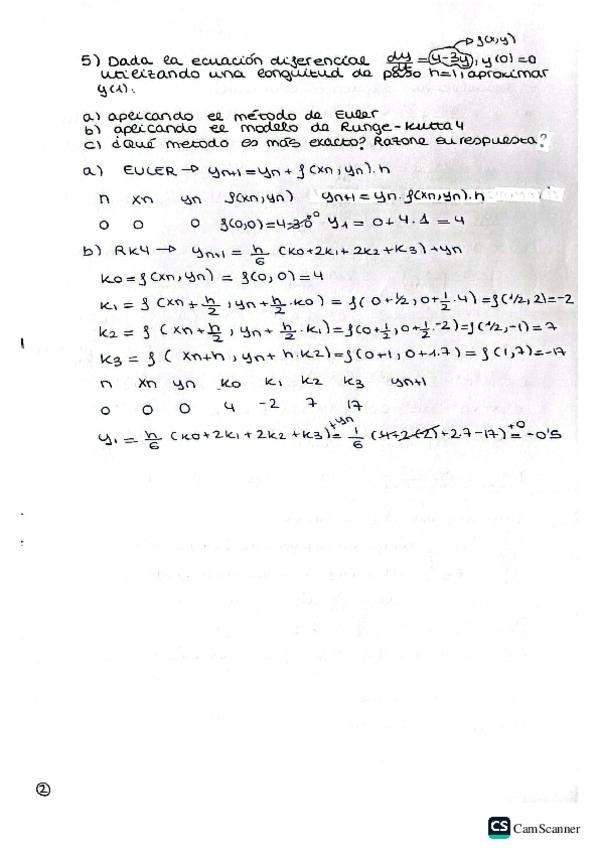 → f(x,y)
5) Dada la ecuación diferencial dy/dt = 4-3y, y(0)=0
utilizando una longuitud de paso h=1, aproximar
y(1).
a) aplicando el método de Euler
b) aplicando el modelo de Runge-Kutta 4
c) ¿Qué metodo es más exacto? Razone su respuesta?
a) EULER → yn+1 = yn + f(xn, yn).h
n xn yn f(xn, yn) yn+1 = yn. f(xn, yn).h
0 0 0 f(0,0)=4-3.0 y1 = 0+4.1 = 4
b) RK4 → yn+1 = h/6 (K0+2K1+2K2+K3)+yn
K0 = f(xn, yn) = f(0,0)=4
K1 = f(xn + h/2, yn + h/2.K0) = f(0+1/2, 0+1/2.4) = f(1/2, 2)=-2
K2 = f(xn+h/2, yn + h/2.K1)=f(0+1/2, 0+1/2.-2)=f(1/2,-1)=7
K3 = f(xn+h, yn+h.K2)=f(0+1, 0+1.7) = f(1,7)=-17
n xn yn K0 K1 K2 K3 yn+1
0 0 0 4 -2 7 17
y1 = h/6 (K0+2K1+2K2+K3)+yn = 1/6 (4+2(-2)+2.7-17)+0 = -0'5
2
CS CamScanner